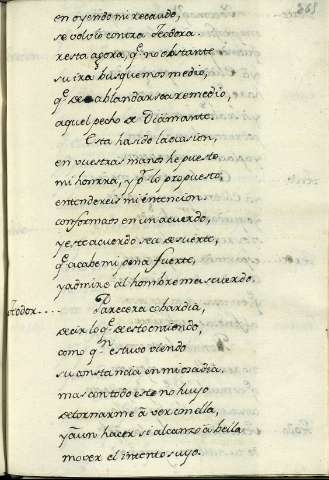 en oyendo mi recaudo,
se volvio contra Teodora.
resta agora, q.e no obstante
su ira busquemos medio,
q.e de ablandar sea remedio,
aquel pecho de Diamante.
Esta ha sido la ocasion,
en vuestras manos he puesto
mi honrra, y p.r lo propuesto,
entendereis mi intencion.
conformaos en un acuerdo,
y este acuerdo sea de suerte,
q.e acabe mi pena fuerte,
y admire al hombre mas cuerdo.
Teodor.... Parecera cobardia,
decir lo q.e de esto entiendo,
como q.n estuvo viendo
su constancia en mi osadia.
mas con todo esto no huyo
de tornarme à ver con ella,
y aun hacer si alcanzo à bella
mover el intento suyo.